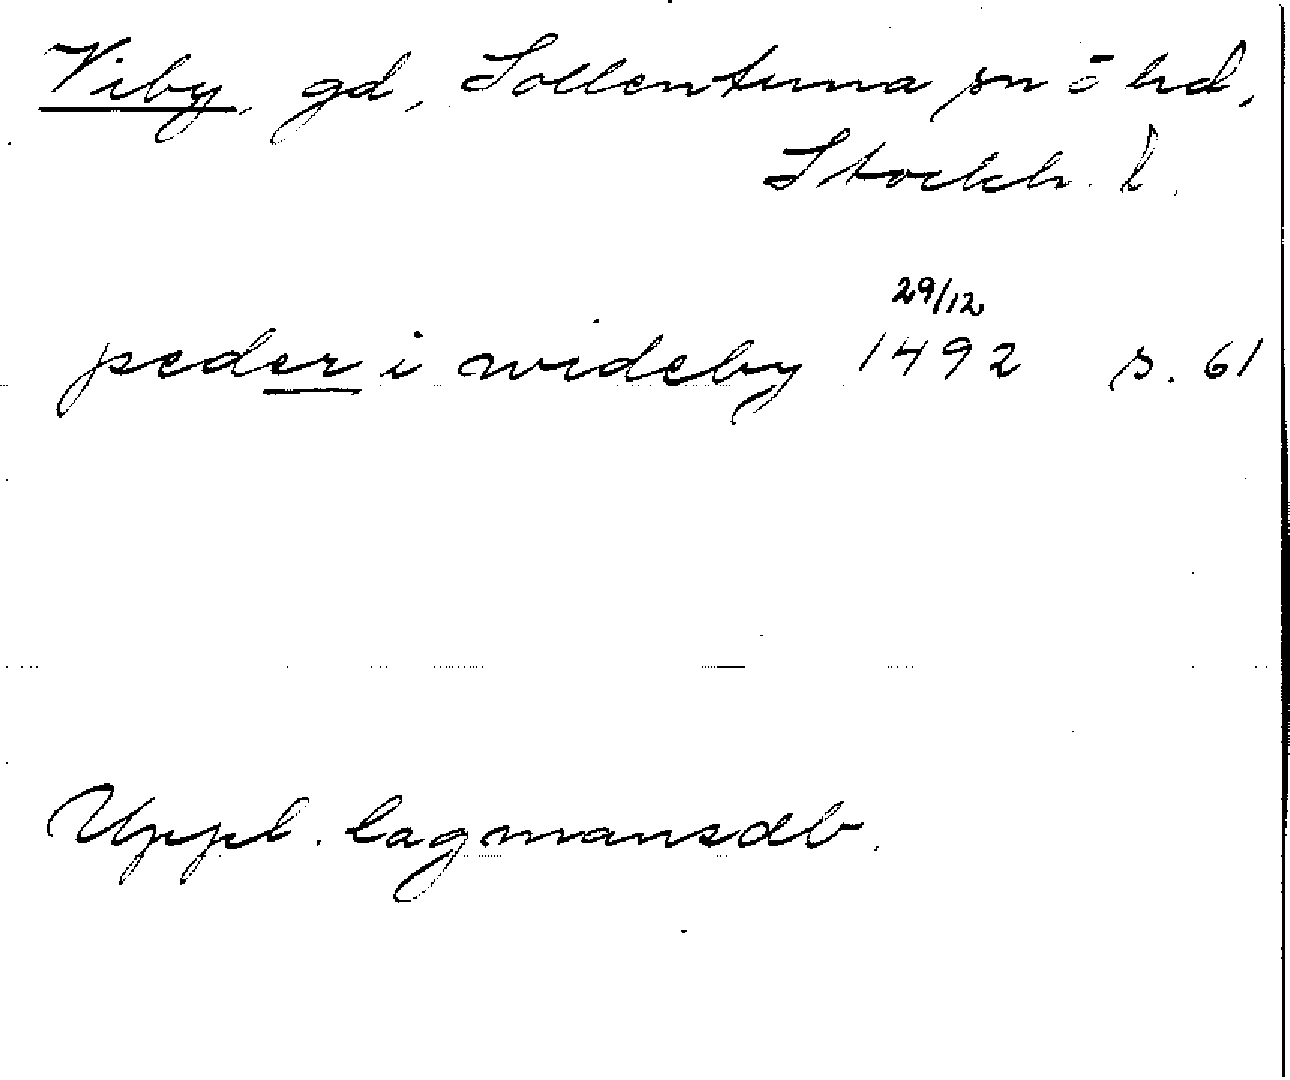 Viby, gd, Sollentuna sn o hd,
Stockh. l.
29/12
peder i wideby 1492 s. 61
Uppl. lagmansdb.